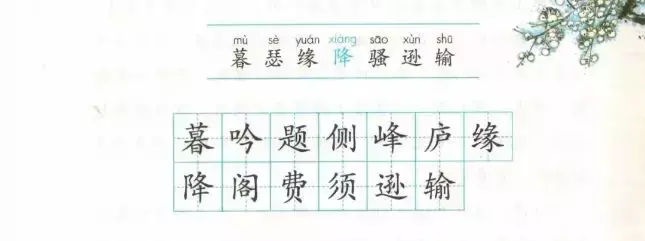 mù sè yuán xiáng sāo xùn shū
暮 瑟 缘 降 骚 逊 输
暮 吟 题 侧 峰 庐 缘
降 阁 费 须 逊 输